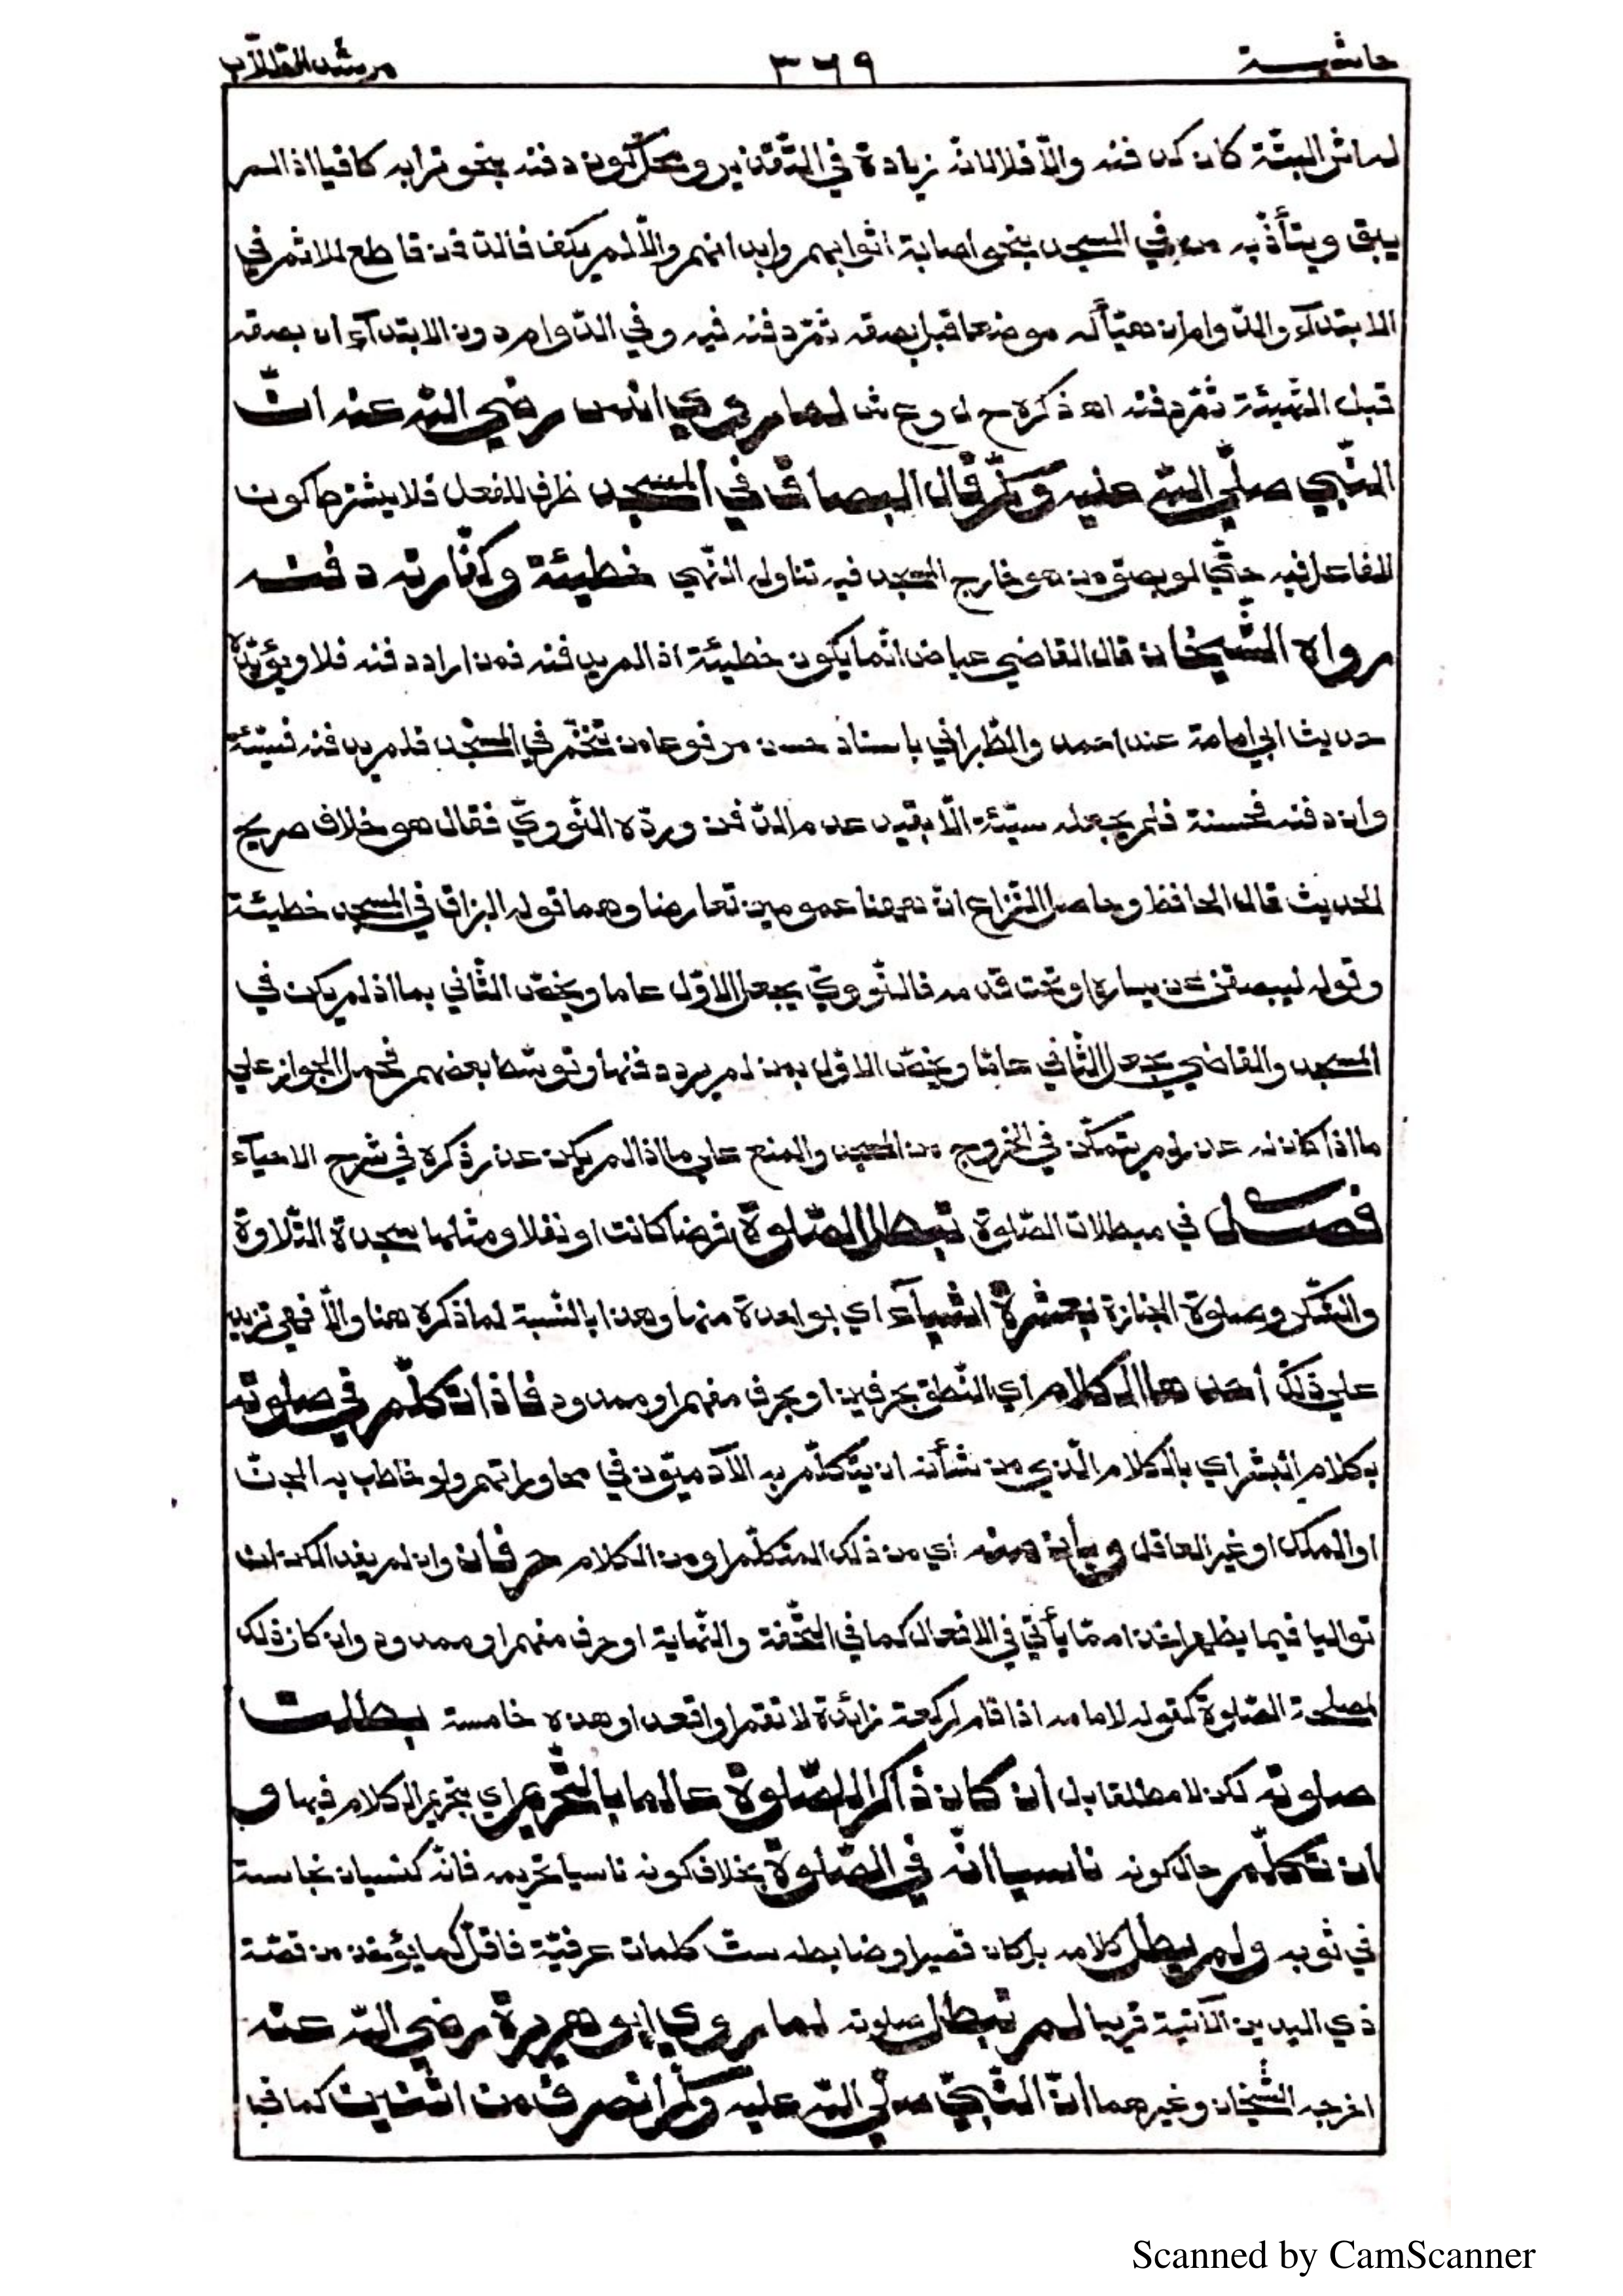 حاشية ٣٦٩ مرشد الطلاب
لها اثر البتة كان كدفنه والّا فلا لانه زيادة في التّقذير ومحل كون دفنه بنحو ترابه كافيا اذا لم
يبق ويتأذّ به من في المسجد بنحو اصابة اثوابهم وابدانهم والّا لم يكف فالدفن قاطع للاثم في
الابتدآء والدّوام ان هيّأ له موضعا قبل بصقه ثمّ دفنه فيه وفي الدّوام دون الابتدآء ان بصقه
قبل التّهيئة ثمّ دفنه اهـ ذكره ح ل و ع ش لما روي انس رضي الله عنه انّ
النّبي صلّي الله عليه وسلّم قال البصاق في المسجد ظرف للفعل فلا يشترط كون
الفاعل فيه حتّي لو بصق من هو خارج المسجد فيه تناوله النّهي خطيئة وكفّارته دفنه
رواه الشّيخان قال القاضي عياض انّما يكون خطيئة اذا لم يدفنه فمن اراد دفنه فلا ويؤيّده
حديث ابي امامة عند احمد والطّبراني باسناد حسن مرفوعا من تنخّم في المسجد فلم يدفنه فسيّئة
وان دفنه فحسنة فلم يجعله سيّئة الّا بقيد عدم الدّفن وردّه النّووي فقال هو خلاف صريح
الحديث قال الحافظ وحاصل النّزاع انّ ههنا عمومين تعارضا وهما قوله البزاق في المسجد خطيئة
وقوله ليبصق عن يساره او تحت قدمه فالنّووي يجعل الاوّل عاما ويخصّ الثّاني بما اذا لم يكن في
المسجد والقاضي يجعل الثّاني عامّا ويخصّ الاوّل بمن لم يرد دفنها وتوسّط بعضهم فحمل الجواز علي
ما اذا كان له عذر لم يتمكّن في الخروج من المسجد والمنع علي ما اذا لم يكن عذر ذكره في شرح الاحيآء
فصل في مبطلات الصّلوة تبطل الصّلوة فرضا كانت او نفلا ومثلها سجدة التّلاوة
والشّكر وصلوة الجنازة بعشرة اشيآء اي بواحدة منها وهذا بالنّسبة لما ذكره هنا والّا فهي تزيد
علي ذلك احدها الكلام اي النّطق بحرفين او بحرف مفهم او ممدود فاذا تكلّم في صلوته
بكلام البشر اي بالكلام الّذي من شأنه ان يتكلّم به الآدميّون في محاوراتهم ولو خاطب به الجنّ
او الملك او غير العاقل وبان منه اي من ذلك المتكلّم او من الكلام حرفان وان لم يفيدا لكن ان
تواليا فيما يظهر اخذا ممّا يأتي في الافعال كما في التّحفة والنّهاية او حرف مفهم او ممدود وان كان ذلك
لمصلحة الصّلوة كقوله لامامه اذا قام لركعة زائدة لا تقم او اقعد او هذه خامسة بطلت
صلوته لكن لا مطلقا بل ان كان ذاكرا للصّلوة عالما بالتّحريم اي بتحريم الكلام فيها و
ان تكلّم حال كونه ناسيا انّه في الصّلوة بخلاف كونه ناسيا تحريمه فانّه كنسيان نجاسة
في ثوبه ولم يطل كلامه بل كان قصيرا وضابطه ستّ كلمات عرفيّة فاقلّ كما يؤخذ من قصّة
ذي اليدين الآتية قريبا لم تبطل صلوته لما روي ابو هريرة رضي الله عنه
اخرجه الشّيخان وغيرهما انّ النّبي صلّي الله عليه وسلّم انصرف من اثنتين كما في
Scanned by CamScanner